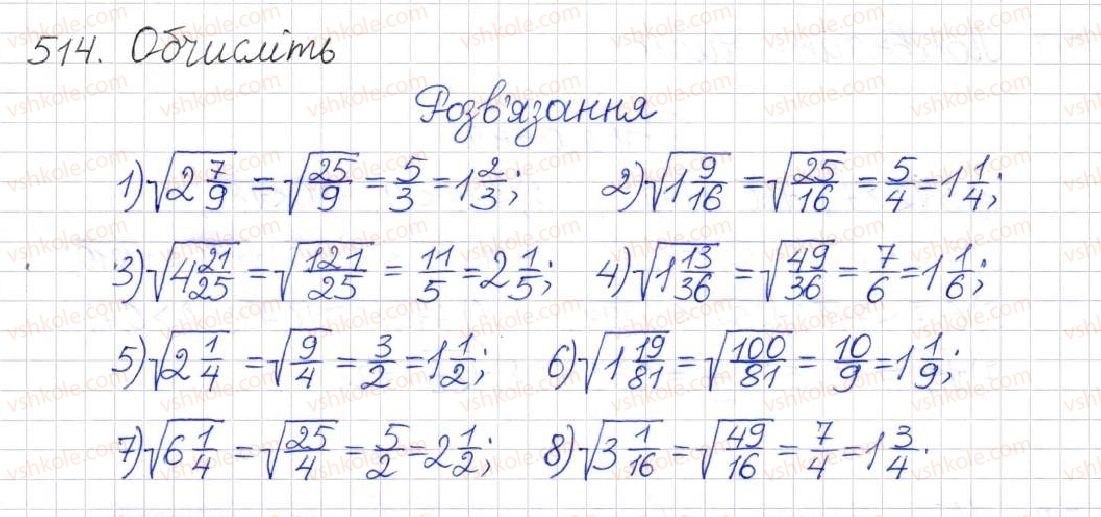 514. Обчисліть
Розв'язання
1) √(2 7/9) = √(25/9) = 5/3 = 1 2/3; 2) √(1 9/16) = √(25/16) = 5/4 = 1 1/4;
3) √(4 21/25) = √(121/25) = 11/5 = 2 1/5; 4) √(1 13/36) = √(49/36) = 7/6 = 1 1/6;
5) √(2 1/4) = √(9/4) = 3/2 = 1 1/2; 6) √(1 19/81) = √(100/81) = 10/9 = 1 1/9;
7) √(6 1/4) = √(25/4) = 5/2 = 2 1/2; 8) √(3 1/16) = √(49/16) = 7/4 = 1 3/4.
vshkole.com